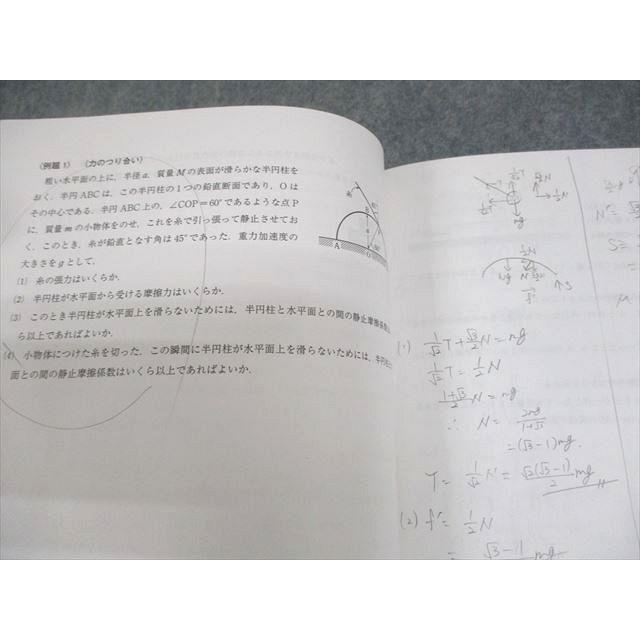 〈例題1〉 (力のつり合い)
粗い水平面の上に,半径a,質量Mの表面が滑らかな半円柱を
おく.半円ABCは,この半円柱の1つの鉛直断面であり,Oは
その中心である.半円ABC上の,∠COP=60°であるような点P
に,質量mの小物体をのせ,これを糸で引っ張って静止させてお
く.このとき,糸が鉛直となす角は45°であった.重力加速度の
大きさをgとして,
(1) 糸の張力はいくらか.
(2) 半円柱が水平面から受ける摩擦力はいくらか.
(3) このとき半円柱が水平面上を滑らないためには,半円柱と水平面との間の静止摩擦係数
ら以上であればよいか.
(4) 小物体につけた糸を切った.この瞬間に半円柱が水平面上を滑らないためには,半円
面との間の静止摩擦係数はいくら以上であればよいか.
A O
(1) 1/√2 T + √3/2 N = mg
1/√2 T = 1/2 N
(1+√3)/2 N = mg
∴ N = 2mg/(1+√3)
= (√3-1)mg.
T = 1/√2 N = √2(√3-1)/2 mg
(2) f = 1/2 N
= √3-1 mg